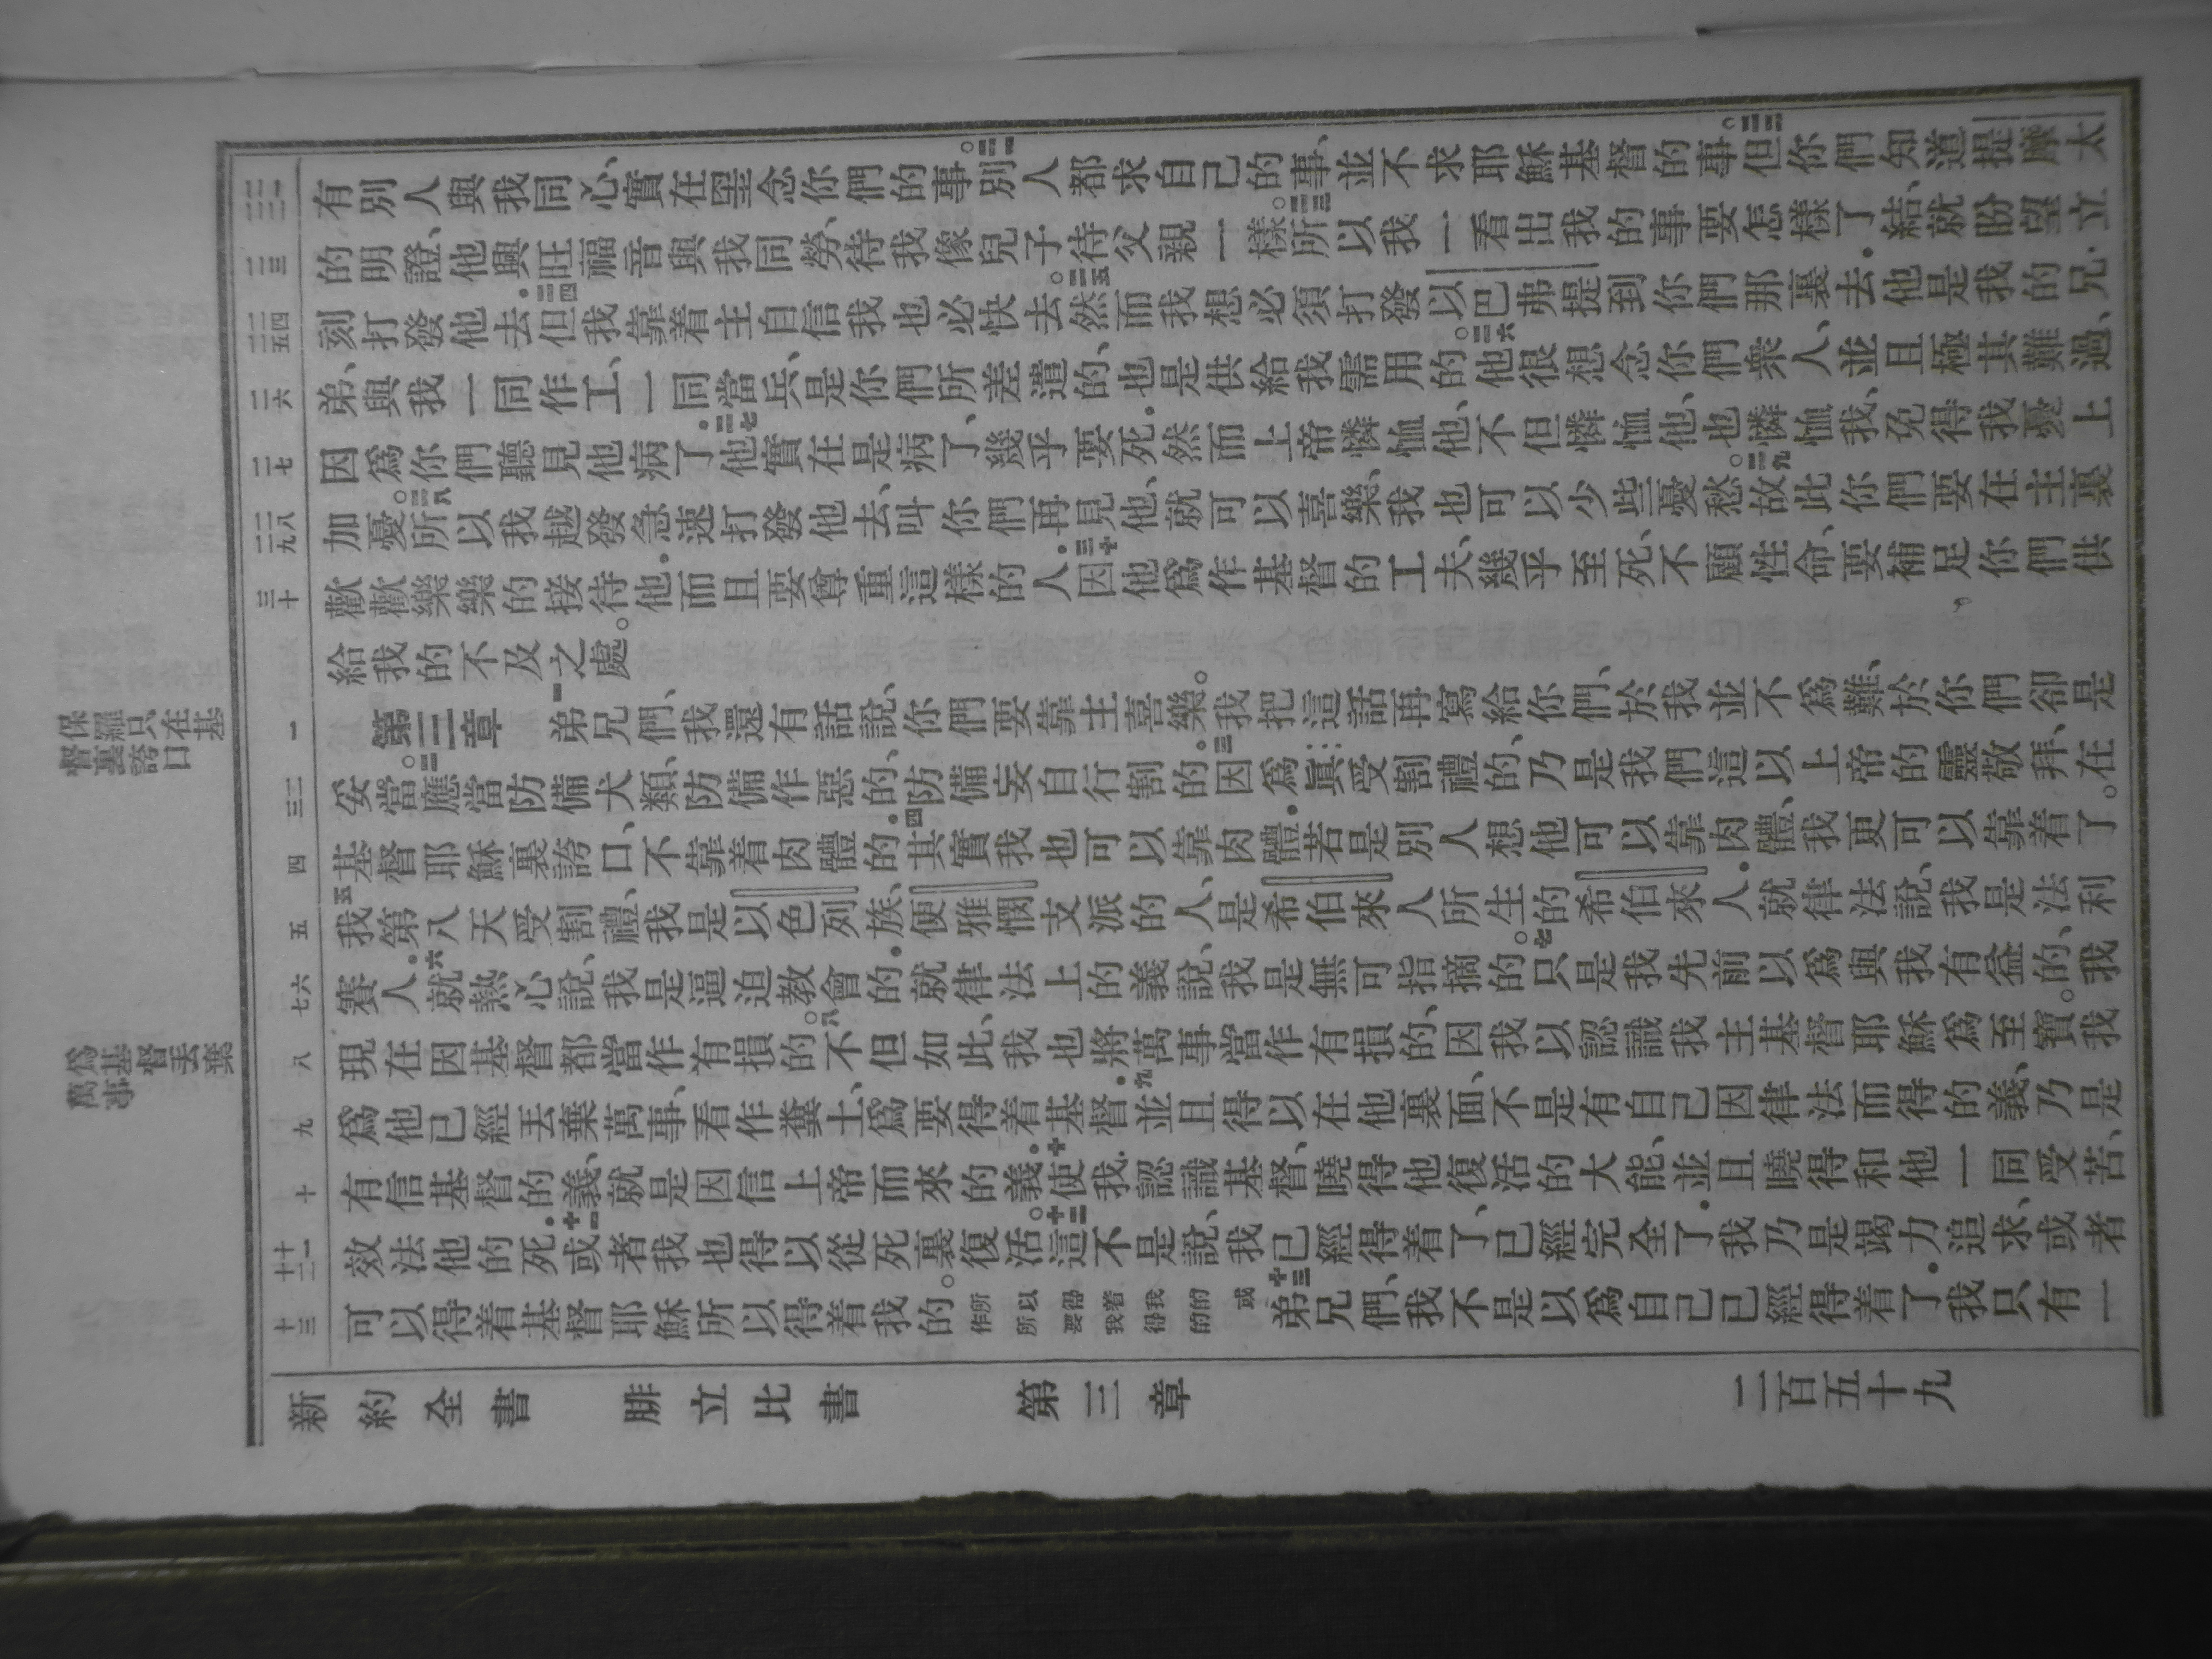 有別人與我同心、實在罣念你們的事。二一別人都求自己的事、並不求耶穌基督的事。二二但你們知道提摩太
的明證、他興旺福音與我同勞、待我像兒子待父親一樣。二三所以我一看出我的事要怎樣了結、就盼望立
刻打發他去．二四但我靠着主自信我也必快去。二五然而我想必須打發以巴弗提到你們那裏去．他是我的兄
弟、與我一同作工、一同當兵、是你們所差遣的、也是供給我需用的。二六他很想念你們衆人、並且極其難過、
因爲你們聽見他病了．二七他實在是病了、幾乎要死．然而上帝憐恤他、不但憐恤他、也憐恤我、免得我憂上
加憂。二八所以我越發急速打發他去、叫你們再見他、就可以喜樂、我也可以少些憂愁。二九故此你們要在主裏
歡歡樂樂的接待他．而且要尊重這樣的人．三十因他爲作基督的工夫、幾乎至死、不顧性命、要補足你們供
給我的不及之處。
第三章 一弟兄們、我還有話說、你們要靠主喜樂。我把這話再寫給你們、於我並不爲難、於你們卻是
妥當。二應當防備犬類、防備作惡的、防備妄自行割的。三因爲眞受割禮的、乃是我們這以上帝的靈敬拜、在
基督耶穌裏誇口、不靠着肉體的．四其實我也可以靠肉體．若是別人想他可以靠肉體、我更可以靠着了。
五我第八天受割禮、我是以色列族、便雅憫支派的人、是希伯來人所生的希伯來人．就律法說、我是法利
賽人．六就熱心說、我是逼迫敎會的．就律法上的義說、我是無可指摘的。七只是我先前以爲與我有益的、我
現在因基督都當作有損的。八不但如此、我也將萬事當作有損的、因我以認識我主基督耶穌爲至寶。我
爲他已經丟棄萬事、看作糞土、爲要得着基督．九並且得以在他裏面、不是有自己因律法而得的義、乃是
有信基督的義、就是因信上帝而來的義．十使我認識基督、曉得他復活的大能、並且曉得和他一同受苦、
效法他的死．十一或者我也得以從死裏復活。十二這不是說、我已經得着了、已經完全了．我乃是竭力追求、或者
可以得着基督耶穌所以得着我的。十三弟兄們、我不是以爲自己已經得着了．我只有一
新約全書 腓立比書 第三章 二百五十九
保羅只在基
督裏誇口
爲基督丟棄
萬事